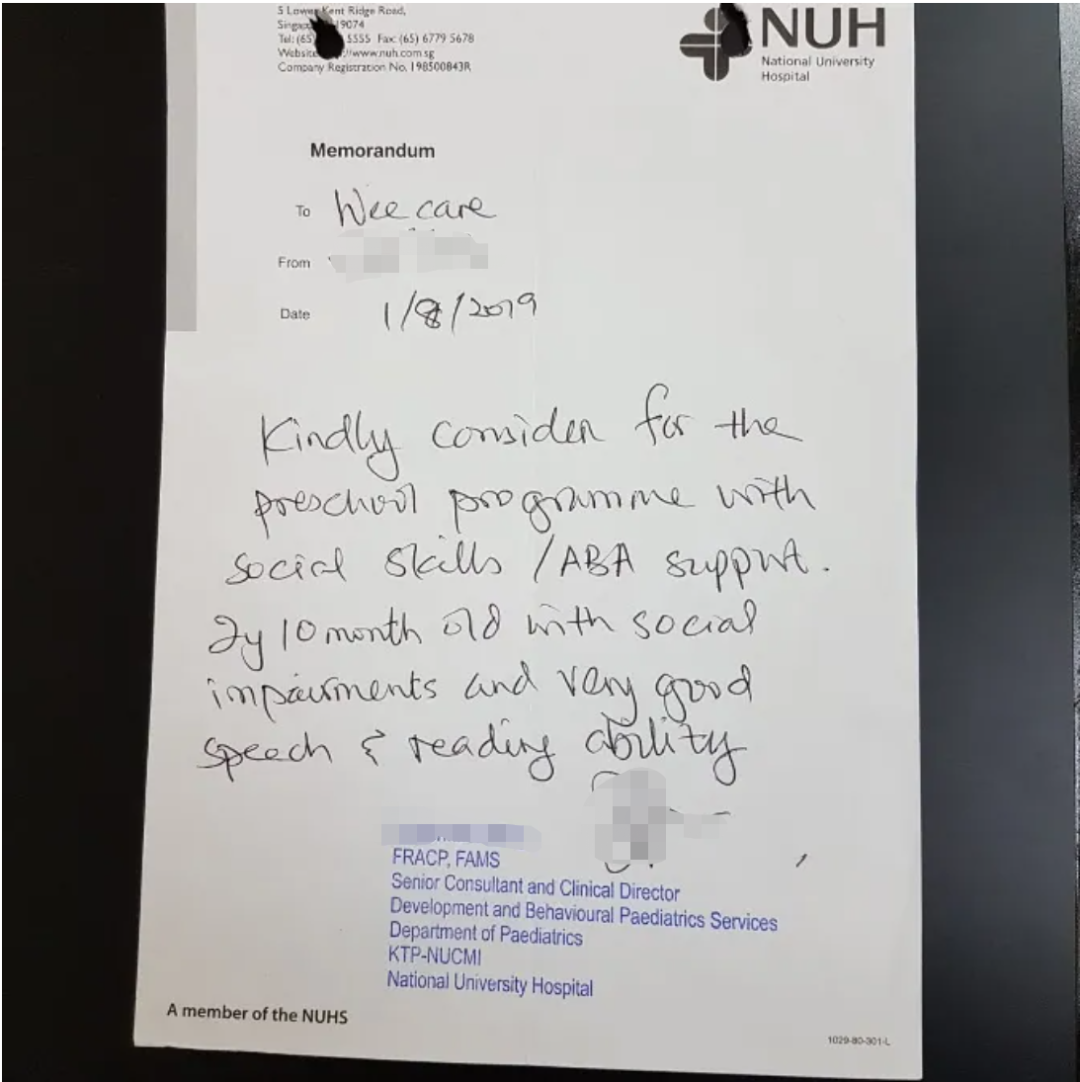 5 Lower Kent Ridge Road,
9074
Tel: (65) 5555 Fax: (65) 6779 5678
Website //www.nuh.com.sg
Company Registration No. 198500843R
NUH
National University
Hospital
Memorandum
To Wee care
From
Date 1/8/2019
Kindly consider for the
preschool programme with
social skills / ABA support.
2y 10 month old with social
impairments and very good
speech & reading ability
FRACP, FAMS
Senior Consultant and Clinical Director
Development and Behavioural Paediatrics Services
Department of Paediatrics
KTP-NUCMI
National University Hospital
A member of the NUHS
1029-80-301-L